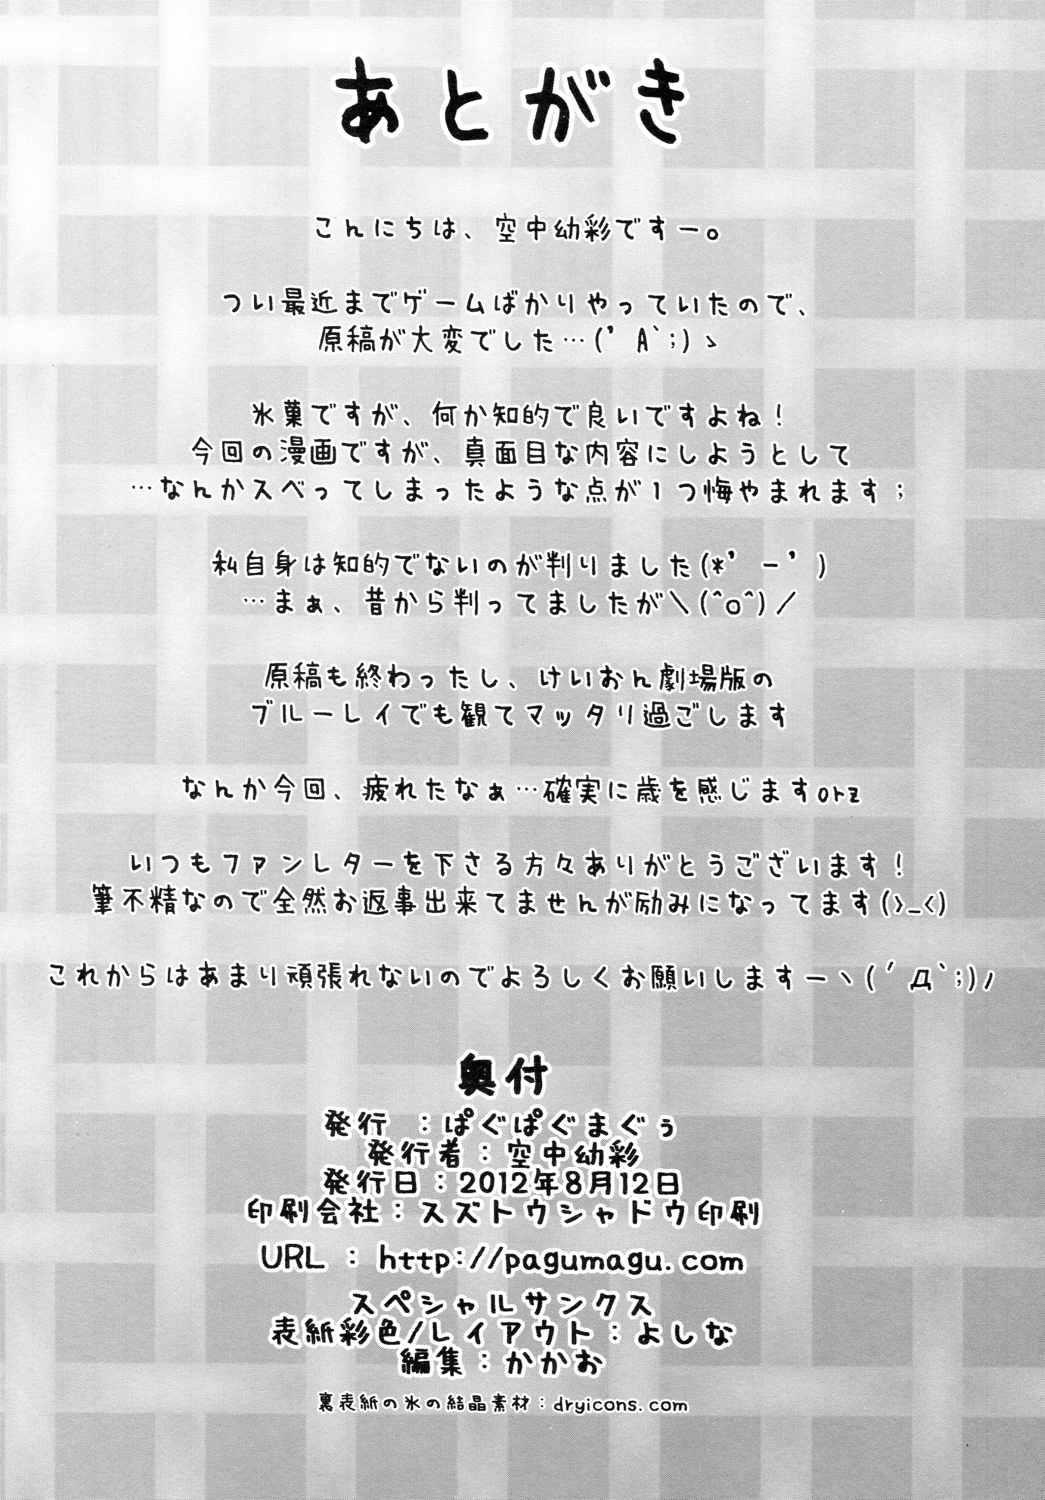 あとがき
こんにちは、空中幼彩ですー。
つい最近までゲームばかりやっていたので、
原稿が大変でした…(’A`;)ゝ
氷菓ですが、何か知的で良いですよね！
今回の漫画ですが、真面目な内容にしようとして
…なんかスベってしまったような点が１つ悔やまれます；
私自身は知的でないのが判りました(*’－’)
…まぁ、昔から判ってましたが＼(^o^)／
原稿も終わったし、けいおん劇場版の
ブルーレイでも観てマッタリ過ごします
なんか今回、疲れたなぁ…確実に歳を感じますorz
いつもファンレターを下さる方々ありがとうございます！
筆不精なので全然お返事出来てませんが励みになってます(>_<)
これからはあまり頑張れないのでよろしくお願いしますーヽ(´Д`;)ﾉ
奥付
発行　：ぱぐぱぐまぐぅ
発行者：空中幼彩
発行日：2012年8月12日
印刷会社：スズトウシャドウ印刷
URL：http://pagumagu.com
スペシャルサンクス
表紙彩色/レイアウト：よしな
編集：かかお
裏表紙の氷の結晶素材：dryicons.com